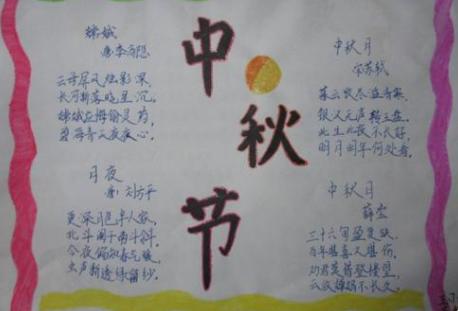 嫦娥
唐李商隐
云母屏风烛影深,
长河渐落晓星沉。
嫦娥应悔偷灵药,
碧海青天夜夜心。
月夜
唐 刘方平
更深月色半人家,
北斗阑干南斗斜。
今夜偏知春气暖,
虫声新透绿窗纱。
中
秋
节
中秋月
宋苏轼
暮云收尽溢清寒,
银汉无声转玉盘。
此生此夜不长好,
明月明年何处看。
中秋月
薛
三十六旬盈复缺,
百年堪喜又堪伤。
劝君莫惜登楼望,
云放婵娟不长久。